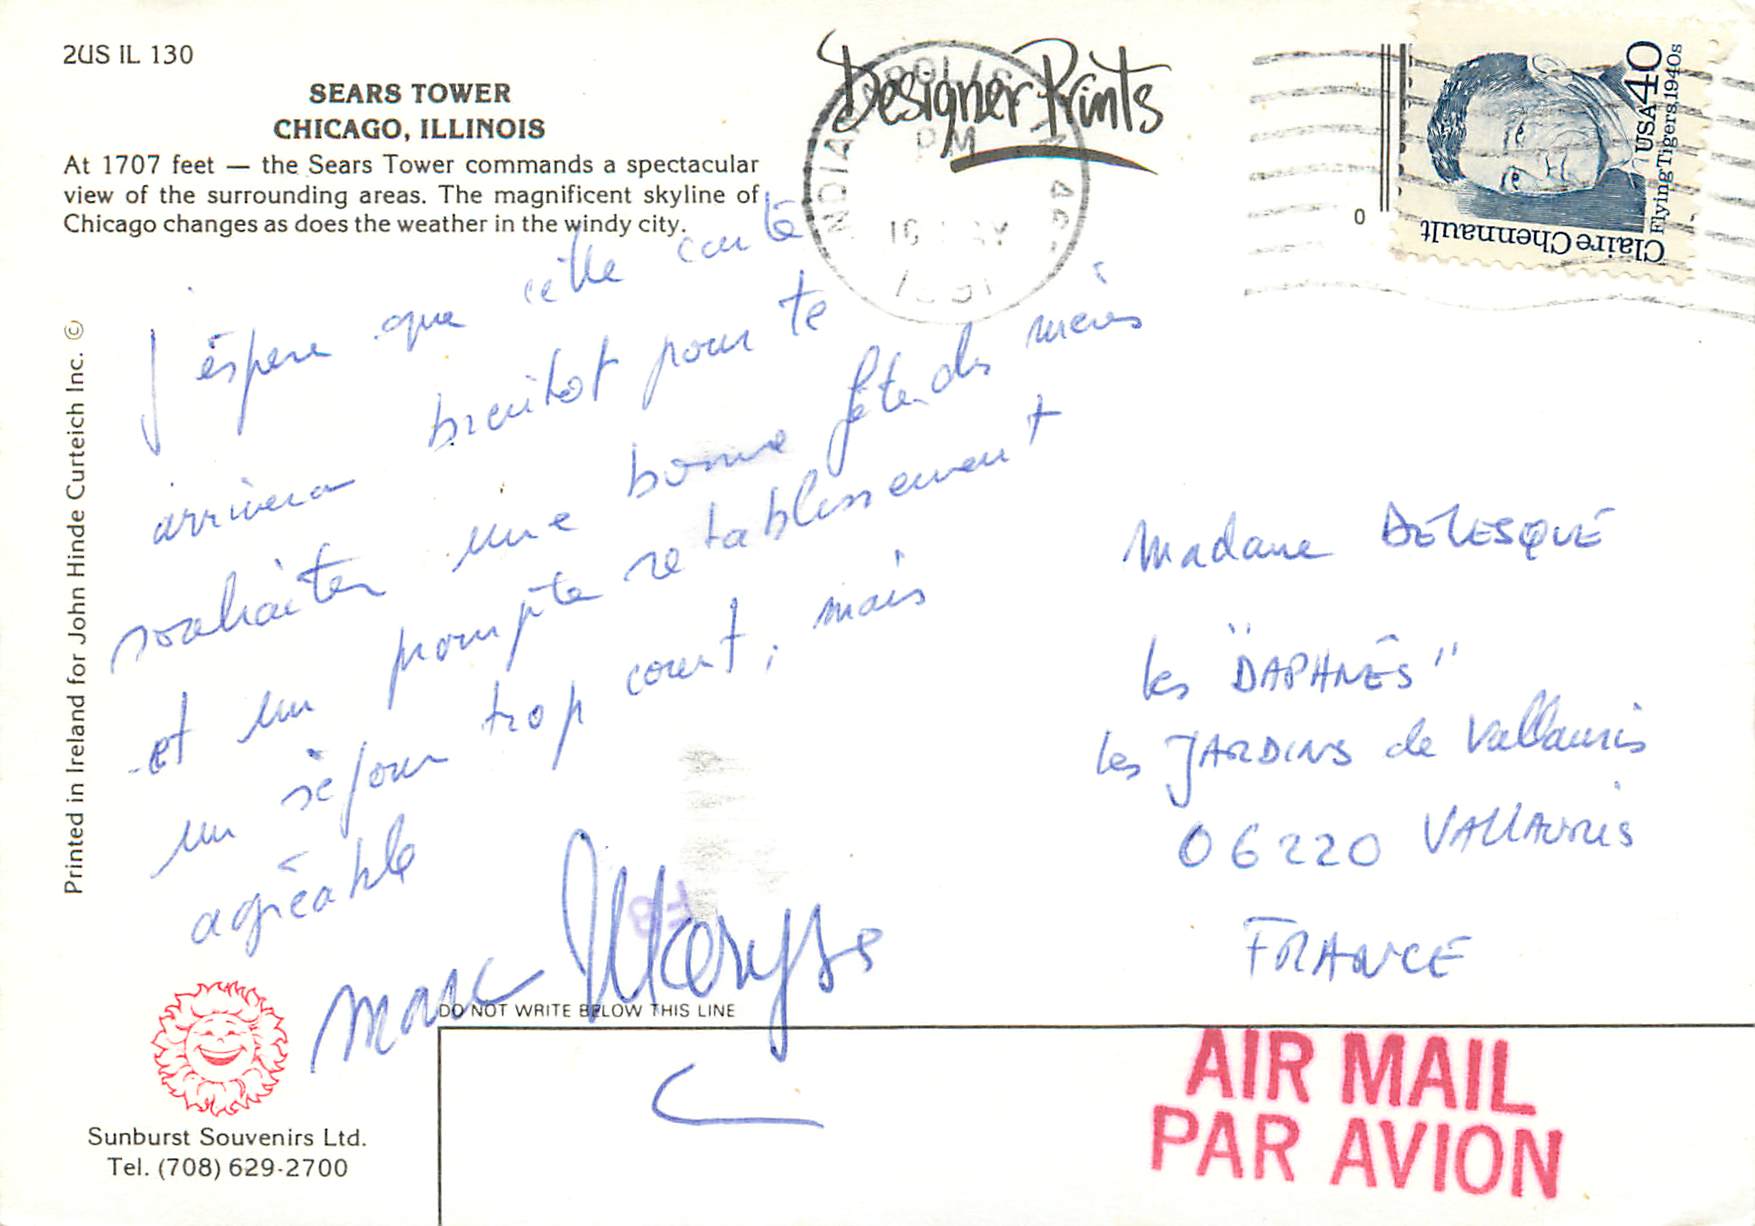 2US IL 130
SEARS TOWER
CHICAGO, ILLINOIS
At 1707 feet — the Sears Tower commands a spectacular
view of the surrounding areas. The magnificent skyline of
Chicago changes as does the weather in the windy city.
Printed in Ireland for John Hinde Curteich Inc. ©
Designer Prints
PM
1991
0
USA 40
Flying Tigers, 1940s
Claire Chennault
j'éspere que cette carte
arrivera bientot pour te
souhaiter une bonne fête des mères
et un prompte retablissement
un séjour trop court, mais
agréable
Marc Maryse
Madame DELESQUE
les "DAPHNÉS"
les JARDINS de Vallauris
06220 VALLAURIS
FRANCE
DO NOT WRITE BELOW THIS LINE
Sunburst Souvenirs Ltd.
Tel. (708) 629-2700
AIR MAIL
PAR AVION